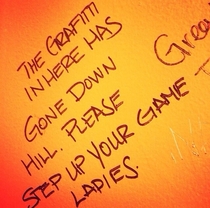 THE GRAFITTI
IN HERE HAS
GONE DOWN
HILL. PLEASE
STEP UP YOUR GAME -
LADIES.